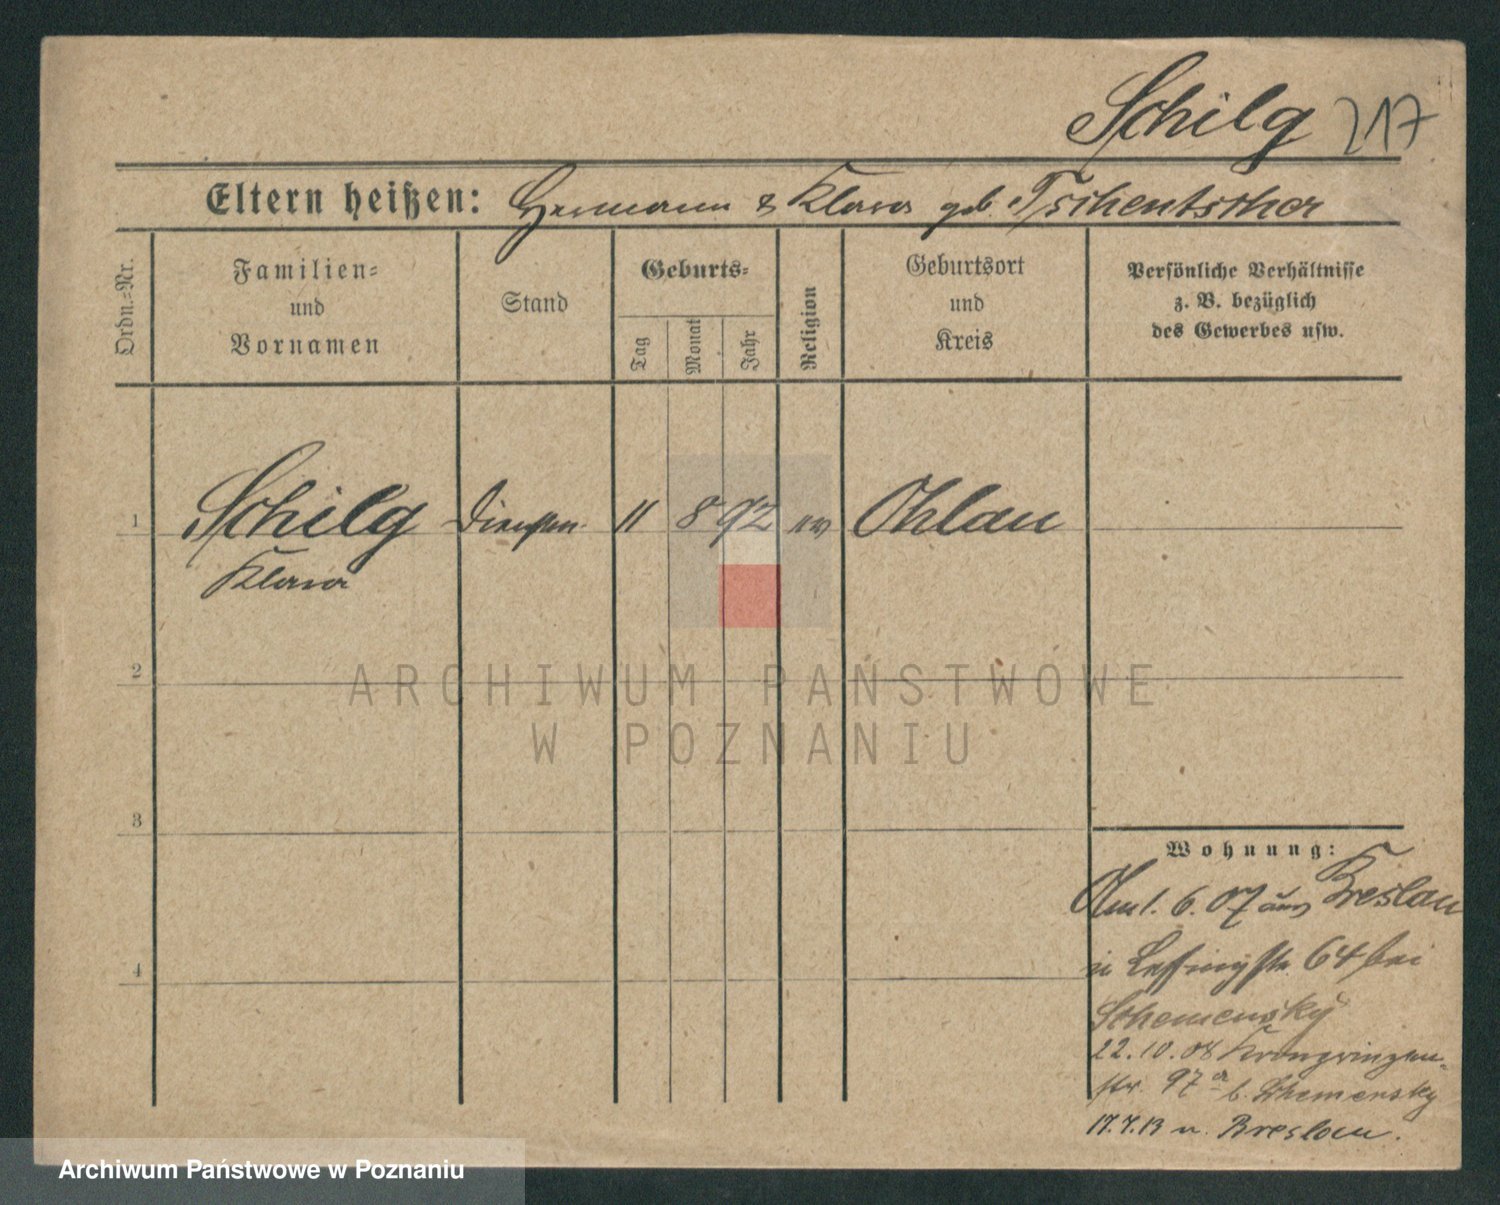 Schilg 217
Eltern heißen: Hermann & Klara geb. Tschentscher
Ordn.=Nr.
Familien=
und
Vornamen
Stand
Geburts=
Tag
Monat
Jahr
Religion
Geburtsort
und
Kreis
Persönliche Verhältnisse
z. B. bezüglich
des Gewerbes usw.
1 Schilg 11 8 92 ev Ohlau
Klara
2
ARCHIWUM PAŃSTWOWE
W POZNANIU
3
Wohnung:
1. 6. 07 aus Breslau
4
in Lessingstr. 64 bei
Schemensky
22. 10. 08 Kronprinzen=
str. 97a b. Schemensky
17.7.13 n. Breslau.
Archiwum Państwowe w Poznaniu